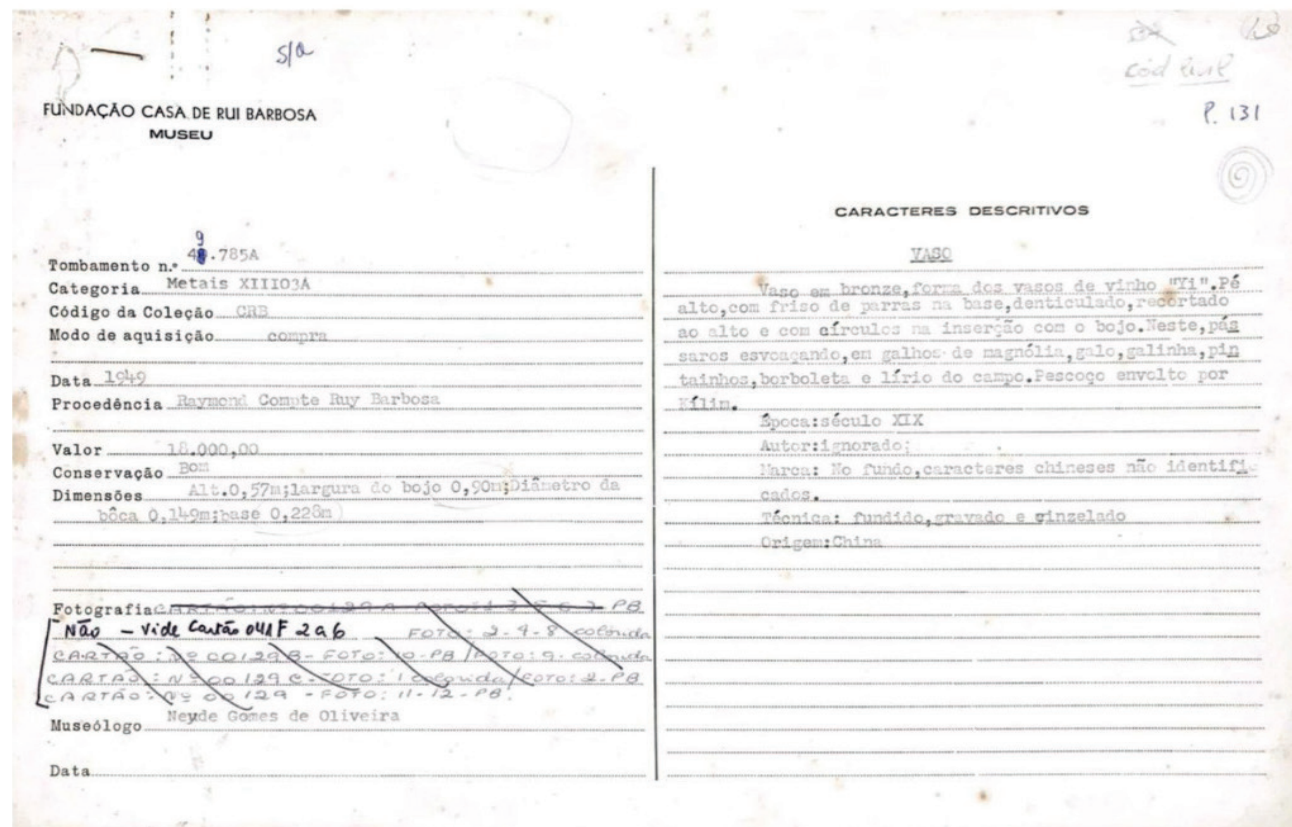 S/a
cód
P. 131
FUNDAÇÃO CASA DE RUI BARBOSA
MUSEU
9
Tombamento n.º 48.785A
Categoria Metais XIII03A
Código da Coleção CRB
Modo de aquisição compra
Data 1949
Procedência Raymond Compte Ruy Barbosa
Valor 18.000,00
Conservação Bom
Dimensões Alt.0,57m;largura do bojo 0,90m;Diâmetro da
bôca 0,149m;base 0,228m)
Fotografia CARTÃO: Nº 00129 A PB
Não - Vide Cartão 041F 2 a 6 FOTO: 2-4-8 colorida
CARTÃO: Nº 00129 B- FOTO: 10-PB / FOTO: 9- colorida
CARTÃO: Nº 00129 C- FOTO: 1 colorida / FOTO: 2-PB
CARTÃO: Nº 00129 - FOTO: 11-12-PB.
Museólogo Neyde Gomes de Oliveira
Data
CARACTERES DESCRITIVOS
VASO
Vaso em bronze,forma dos vasos de vinho "Yi".Pé
alto,com friso de parras na base,denticulado,recortado
ao alto e com círculos na inserção com o bojo.Neste,pás
saros esvoaçando,em galhos de magnólia,galo,galinha,pin
tainhos,borboleta e lírio do campo.Pescoço envolto por
Kílim.
Época:século XIX
Autor:ignorado;
Marca: No fundo,caracteres chineses não identifi
cados.
Técnica: fundido,gravado e cinzelado
Origem:China